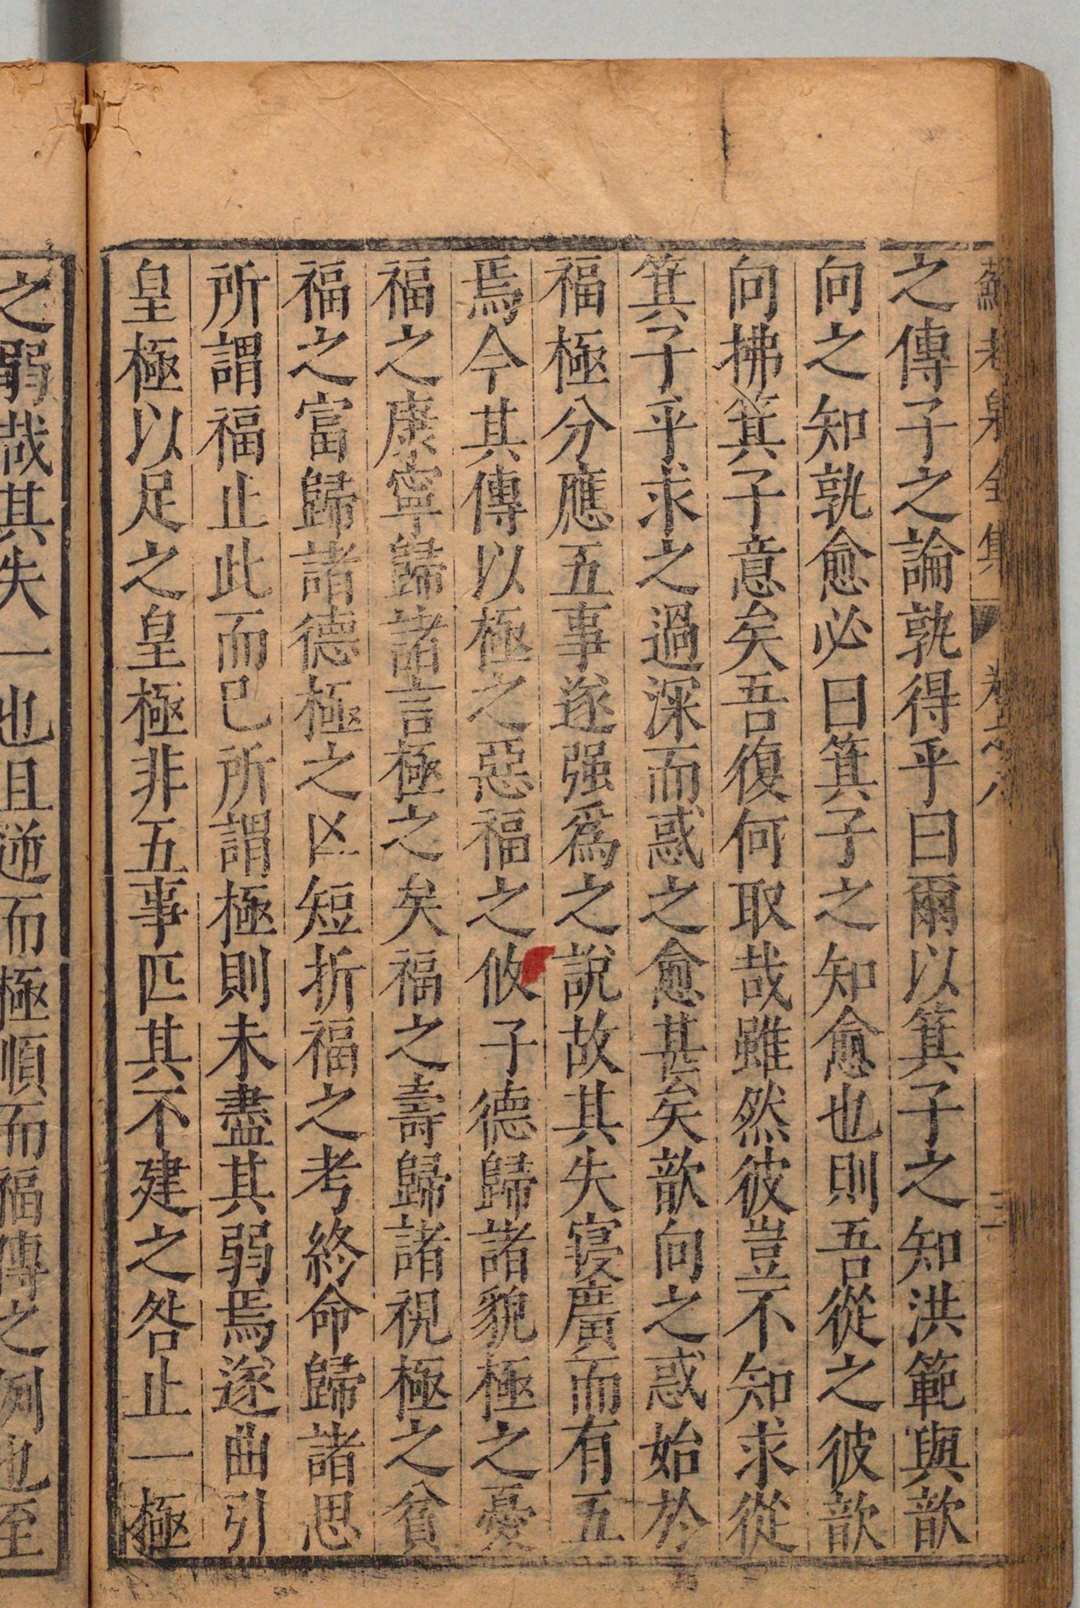 蘇老泉全集 卷之八 三
之傳子之論孰得乎曰爾以箕子之知洪範與歆
向之知孰愈必曰箕子之知愈也則吾從之彼歆
向拂箕子意矣吾復何取哉雖然彼豈不知求從
箕子乎求之過深而惑之愈甚矣歆向之惑始於
福極分應五事遂强爲之說故其失寖廣而有五
焉今其傳以極之惡福之攸子德歸諸貌極之憂
福之康寧歸諸言極之矣福之壽歸諸視極之貧
福之富歸諸德極之凶短折福之考終命歸諸思
所謂福止此而已所謂極則未盡其弱焉遂曲引
皇極以足之皇極非五事匹其不建之咎止一極
之弱哉其失一也且逆而極順而福傳之例也至